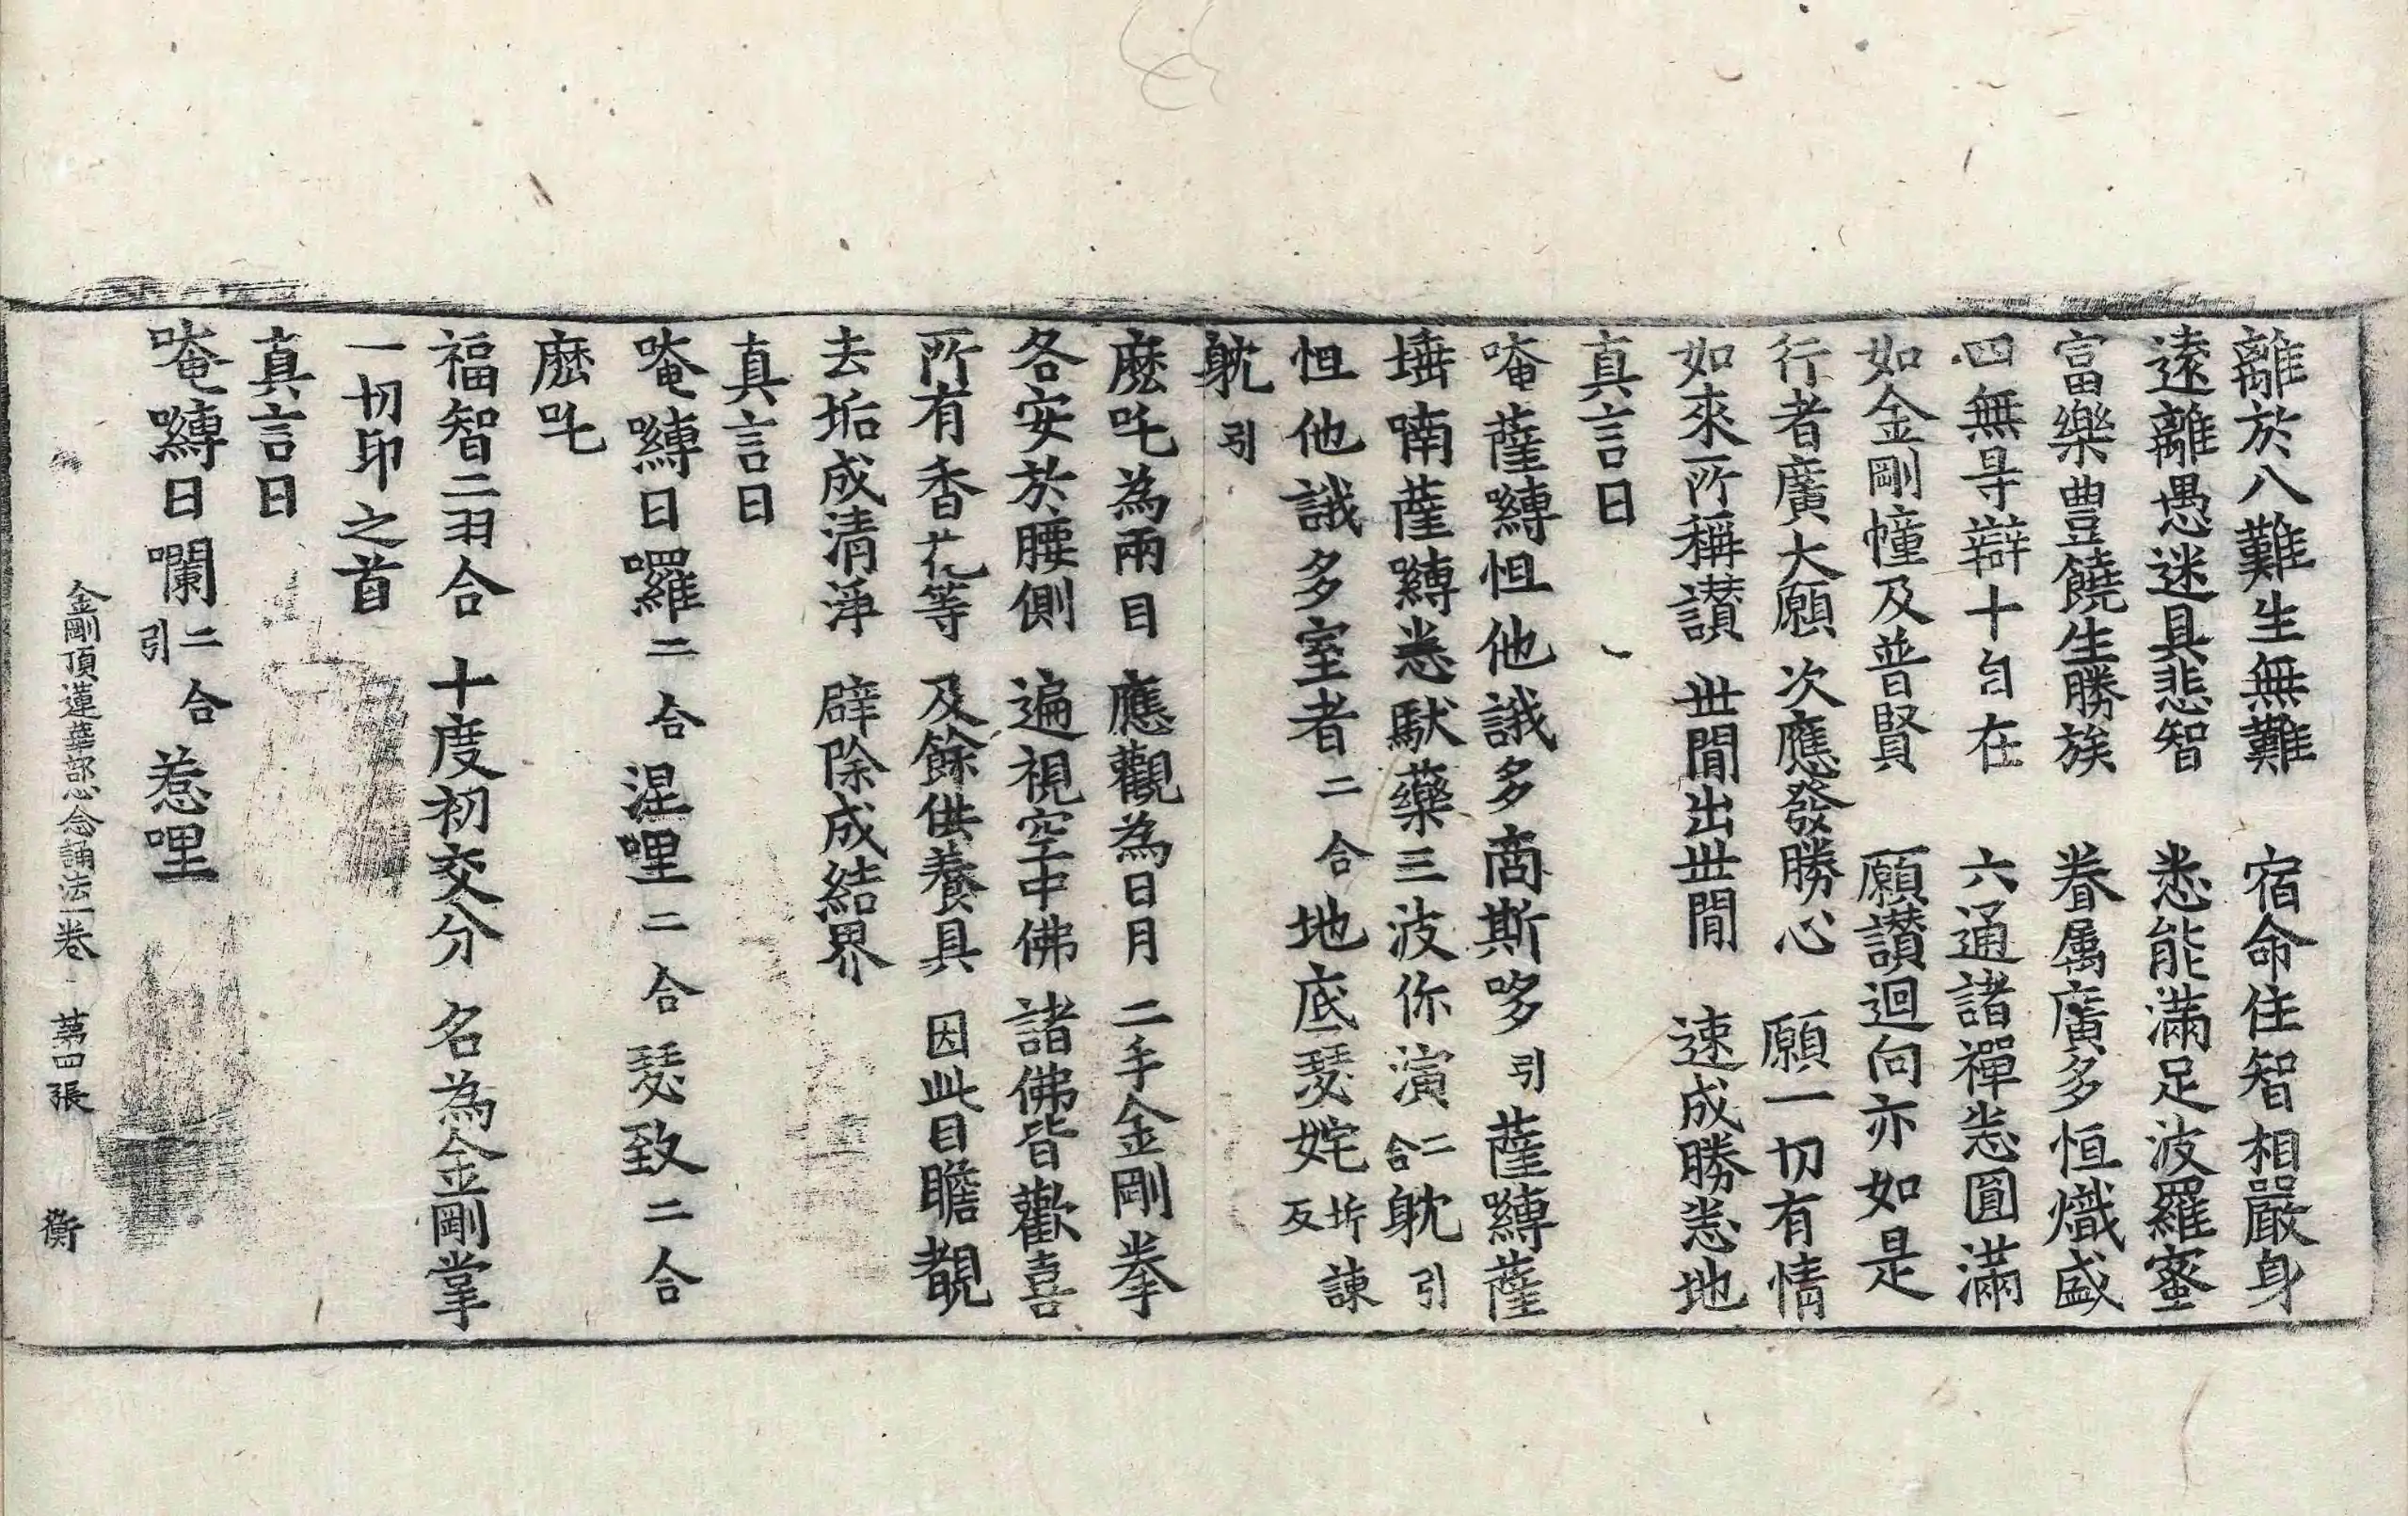 離於八難生無難　宿命住智相嚴身
遠離愚迷具悲智　悉能滿足波羅蜜
富樂豊饒生勝族　眷属廣多恒熾盛
四無㝵辯十自在　六通諸禪悉圓滿
如金剛幢及普賢　願讃迴向亦如是
行者廣大願　次應發勝心　願一切有情
如來所稱讃　世間出世間　速成勝悉地
真言曰
唵薩嚩怛他誐多商斯哆引薩嚩薩
埵喃薩嚩悉馱藥三波你演二合躭引
怛他誐多室者二合地底瑟姹坼諫反
躭引
麽吒為兩目　應觀為日月　二手金剛拳
各安於腰側　遍視空中佛　諸佛皆歡喜
所有香花等　及餘供養具　因此目瞻覩
去垢成清淨　辟除成結界
真言曰
唵嚩日囉二合涅哩二合瑟致二合
麽吒
福智二羽合　十度初交分　名為金剛掌
一切印之首
真言曰
唵嚩日囒二合引惹哩
金剛頂蓮華部心念誦法一卷　第四張　衡